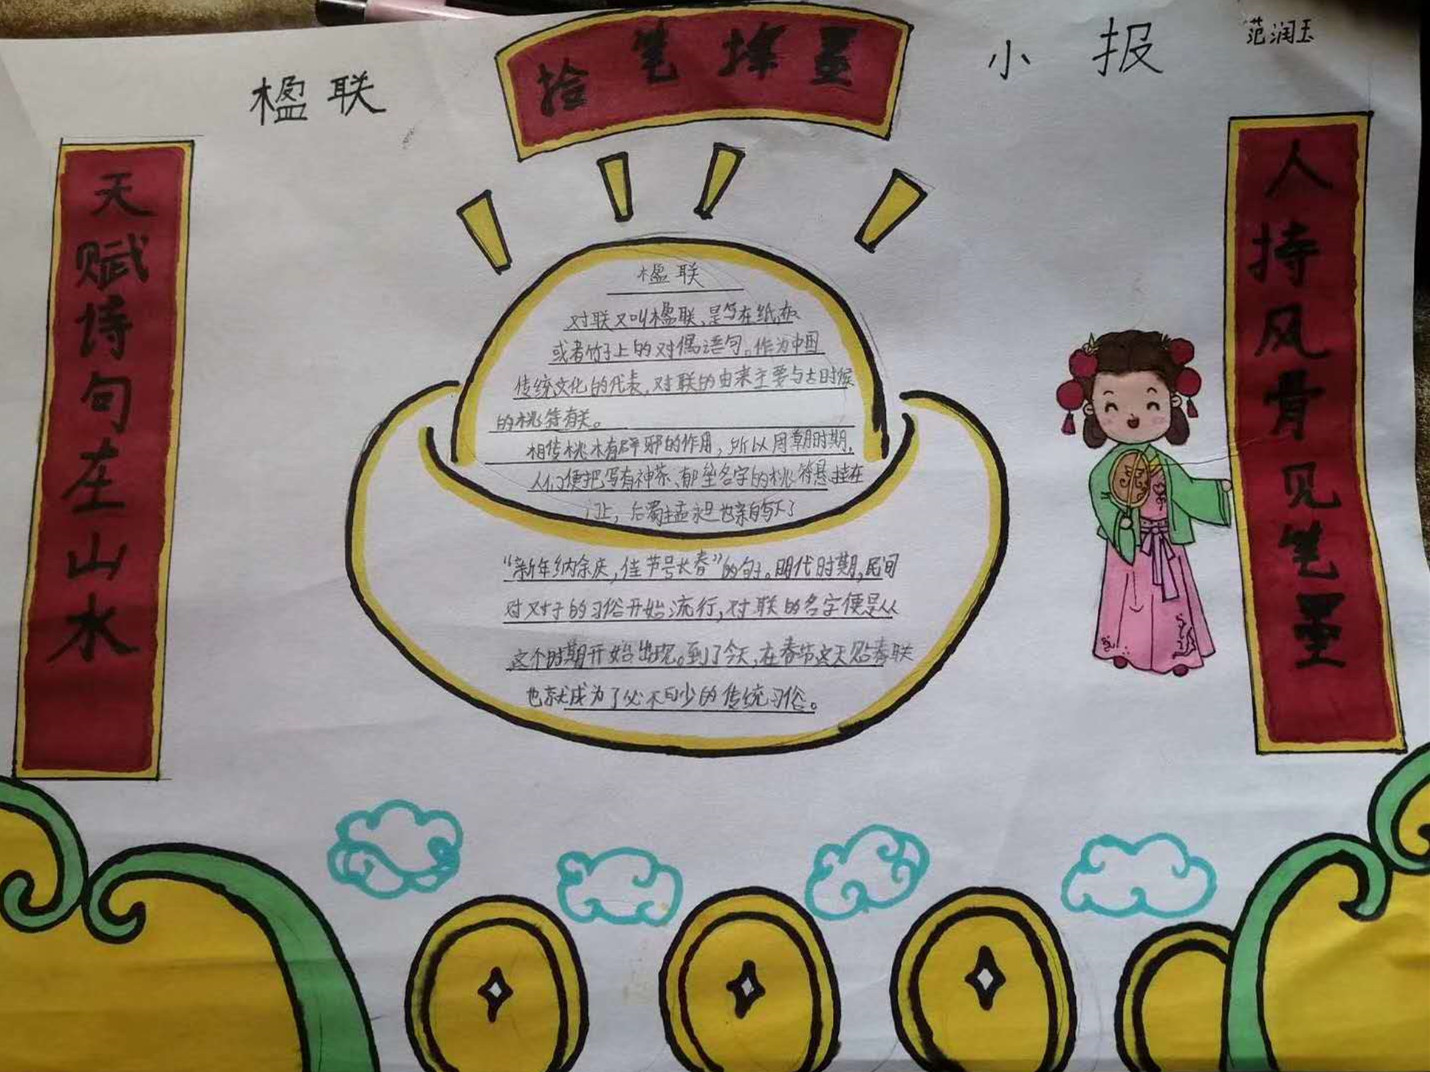 楹联
拾笔择墨
小报
范润玉
天赋诗句在山水
人持风骨见笔墨
楹联
对联又叫楹联,是写在纸、布
或者竹子上的对偶语句。作为中国
传统文化的代表,对联的由来主要与古时候
的桃符有关。
相传桃木有辟邪的作用,所以周朝时期,
人们便把写有神荼、郁垒名字的桃符悬挂在
门上,后蜀主孟昶也亲自写下了
“新年纳余庆,佳节号长春”的句子。明代时期,民间
对对子的习俗开始流行,对联的名字便是从
这个时期开始出现。到了今天,在春节这天贴春联
也就成为了必不可少的传统习俗。